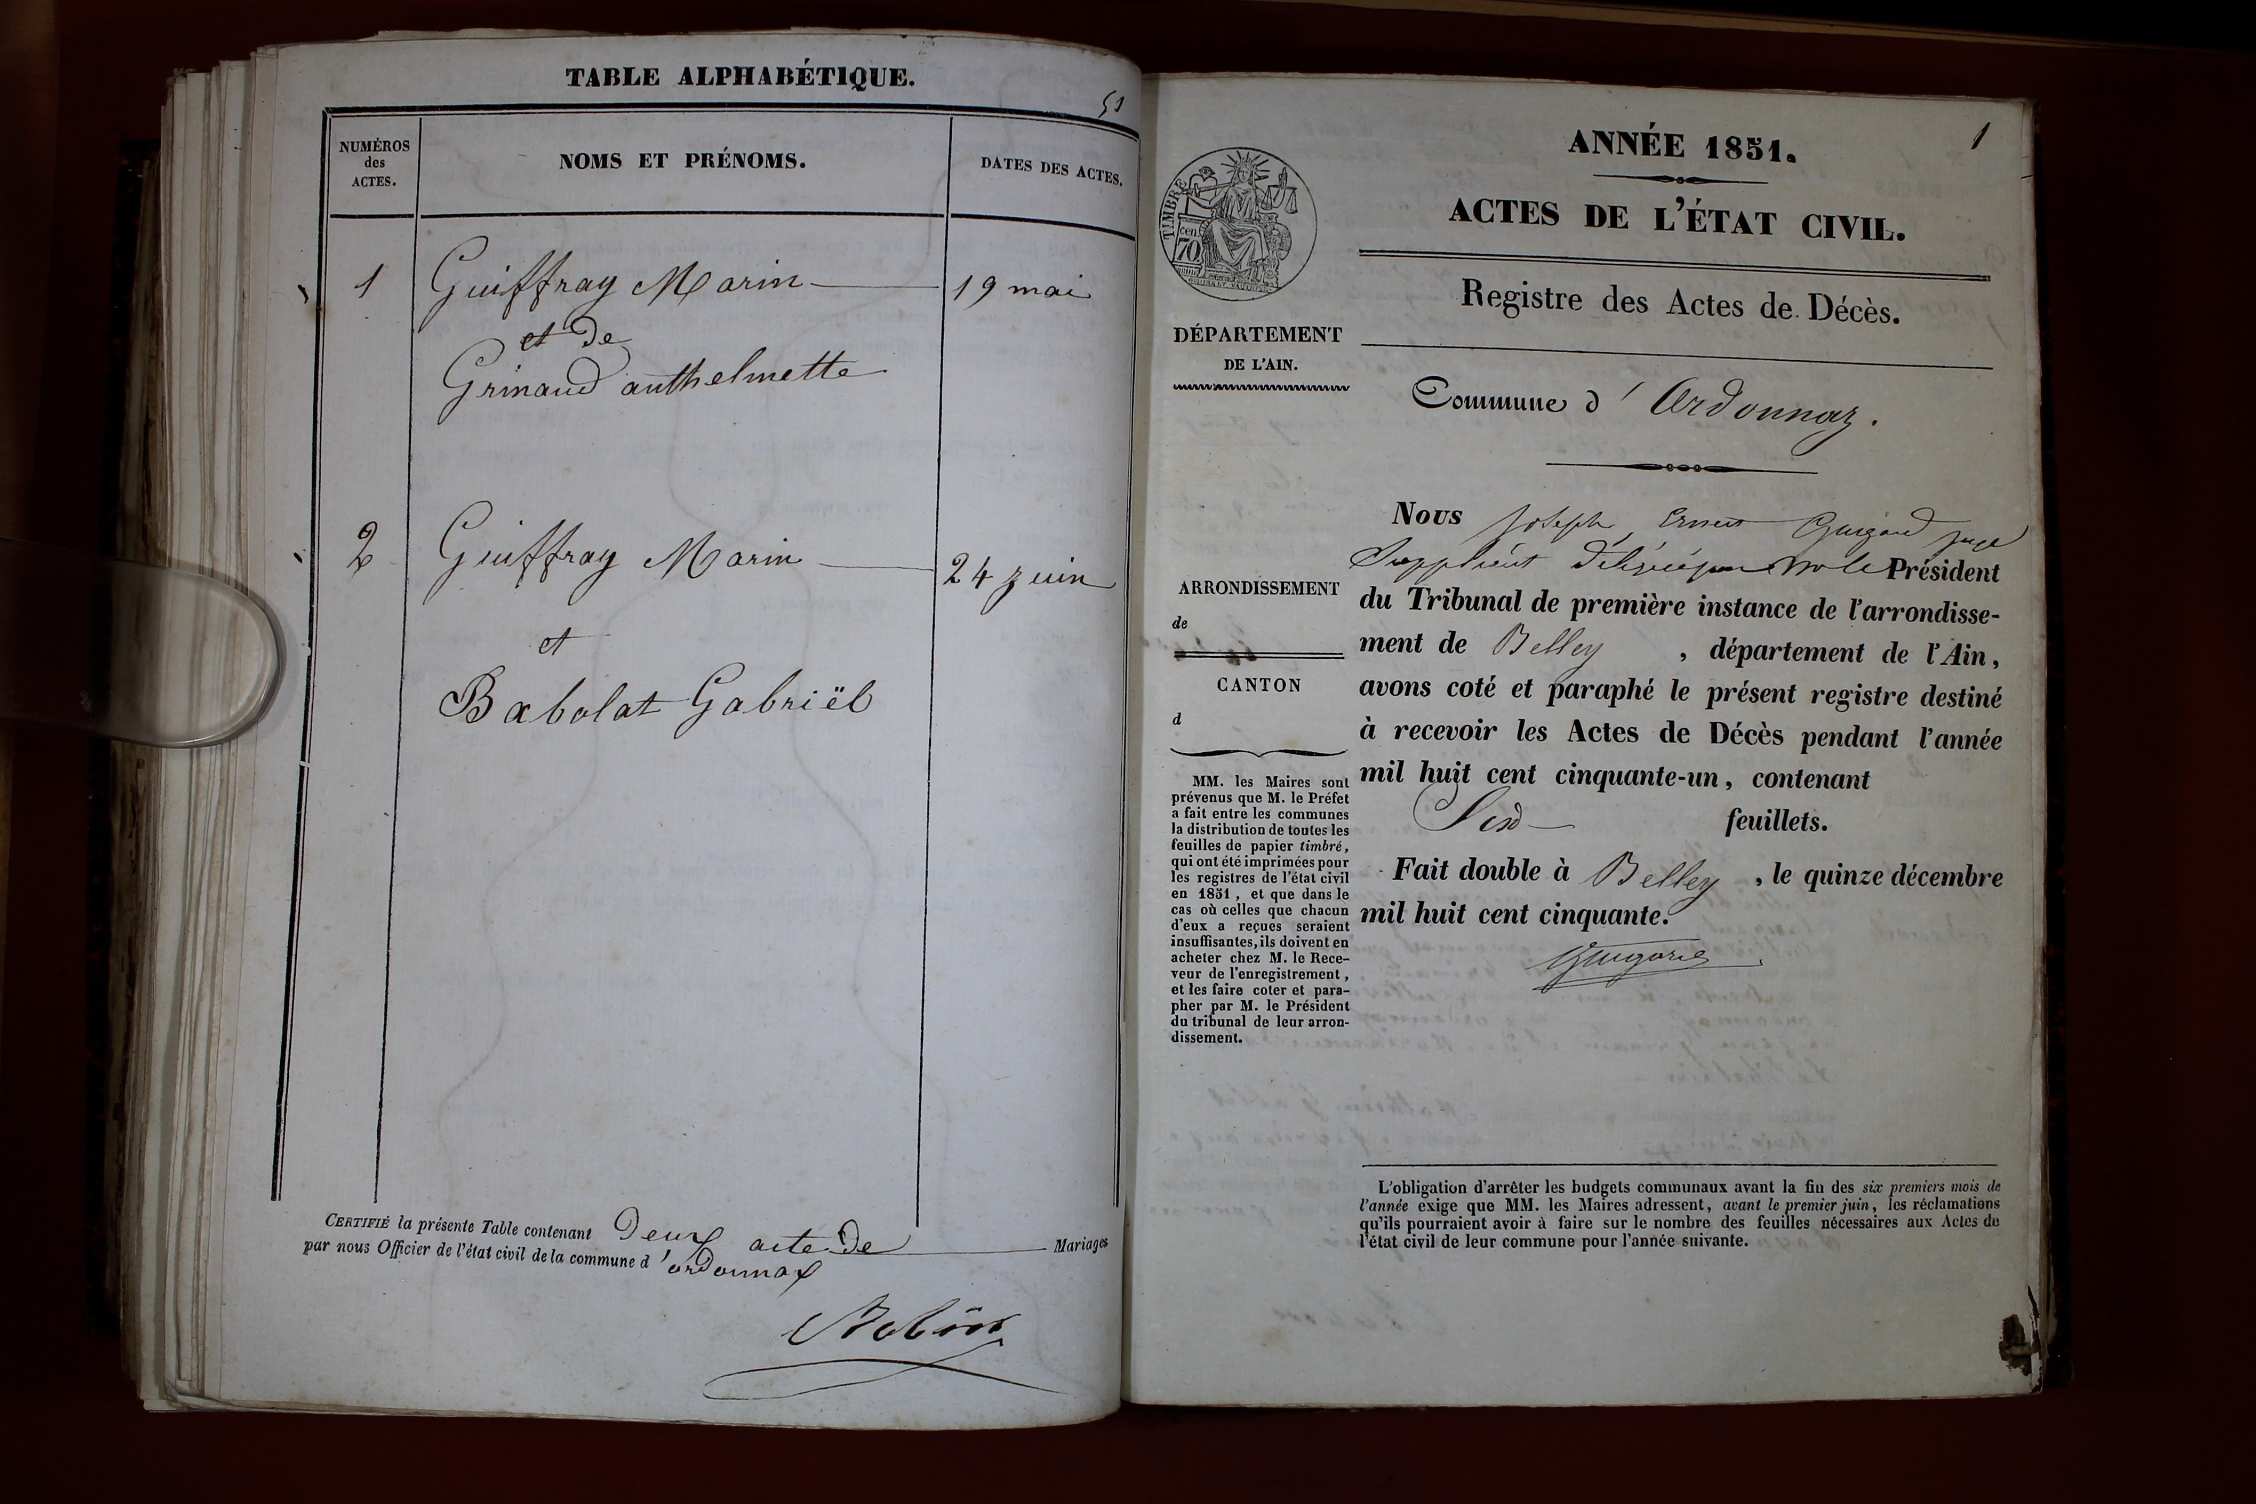 TABLE ALPHABÉTIQUE.
51
NUMÉROS
des
ACTES.
NOMS ET PRÉNOMS.
DATES DES ACTES.
1 Guiffray Marin 19 mai
et de
Grinaud anthelmette
2 Guiffray Marin 24 juin
et
Babolat Gabriël
CERTIFIÉ la présente Table contenant Deux acte de Mariages
par nous Officier de l'état civil de la commune d'ordonnax
1
ANNÉE 1851.
ACTES DE L'ÉTAT CIVIL.
Registre des Actes de Décès.
TIMBRE
70
cen.
DÉPARTEMENT
DE L'AIN.
Commune d'Ordonnaz.
ARRONDISSEMENT
de
CANTON
d
MM. les Maires sont
prévenus que M. le Préfet
a fait entre les communes
la distribution de toutes les
feuilles de papier timbré,
qui ont été imprimées pour
les registres de l'état civil
en 1851, et que dans le
cas où celles que chacun
d'eux a reçues seraient
insuffisantes, ils doivent en
acheter chez M. le Rece-
veur de l'enregistrement,
et les faire coter et para-
pher par M. le Président
du tribunal de leur arron-
dissement.
Nous Joseph Ernest Guigard juge
Suppléant délégué par Mr le Président
du Tribunal de première instance de l'arrondisse-
ment de Belley, département de l'Ain,
avons coté et paraphé le présent registre destiné
à recevoir les Actes de Décès pendant l'année
mil huit cent cinquante-un, contenant
Six feuillets.
Fait double à Belley, le quinze décembre
mil huit cent cinquante.
L'obligation d'arrêter les budgets communaux avant la fin des six premiers mois de
l'année exige que MM. les Maires adressent, avant le premier juin, les réclamations
qu'ils pourraient avoir à faire sur le nombre des feuilles nécessaires aux Actes de
l'état civil de leur commune pour l'année suivante.